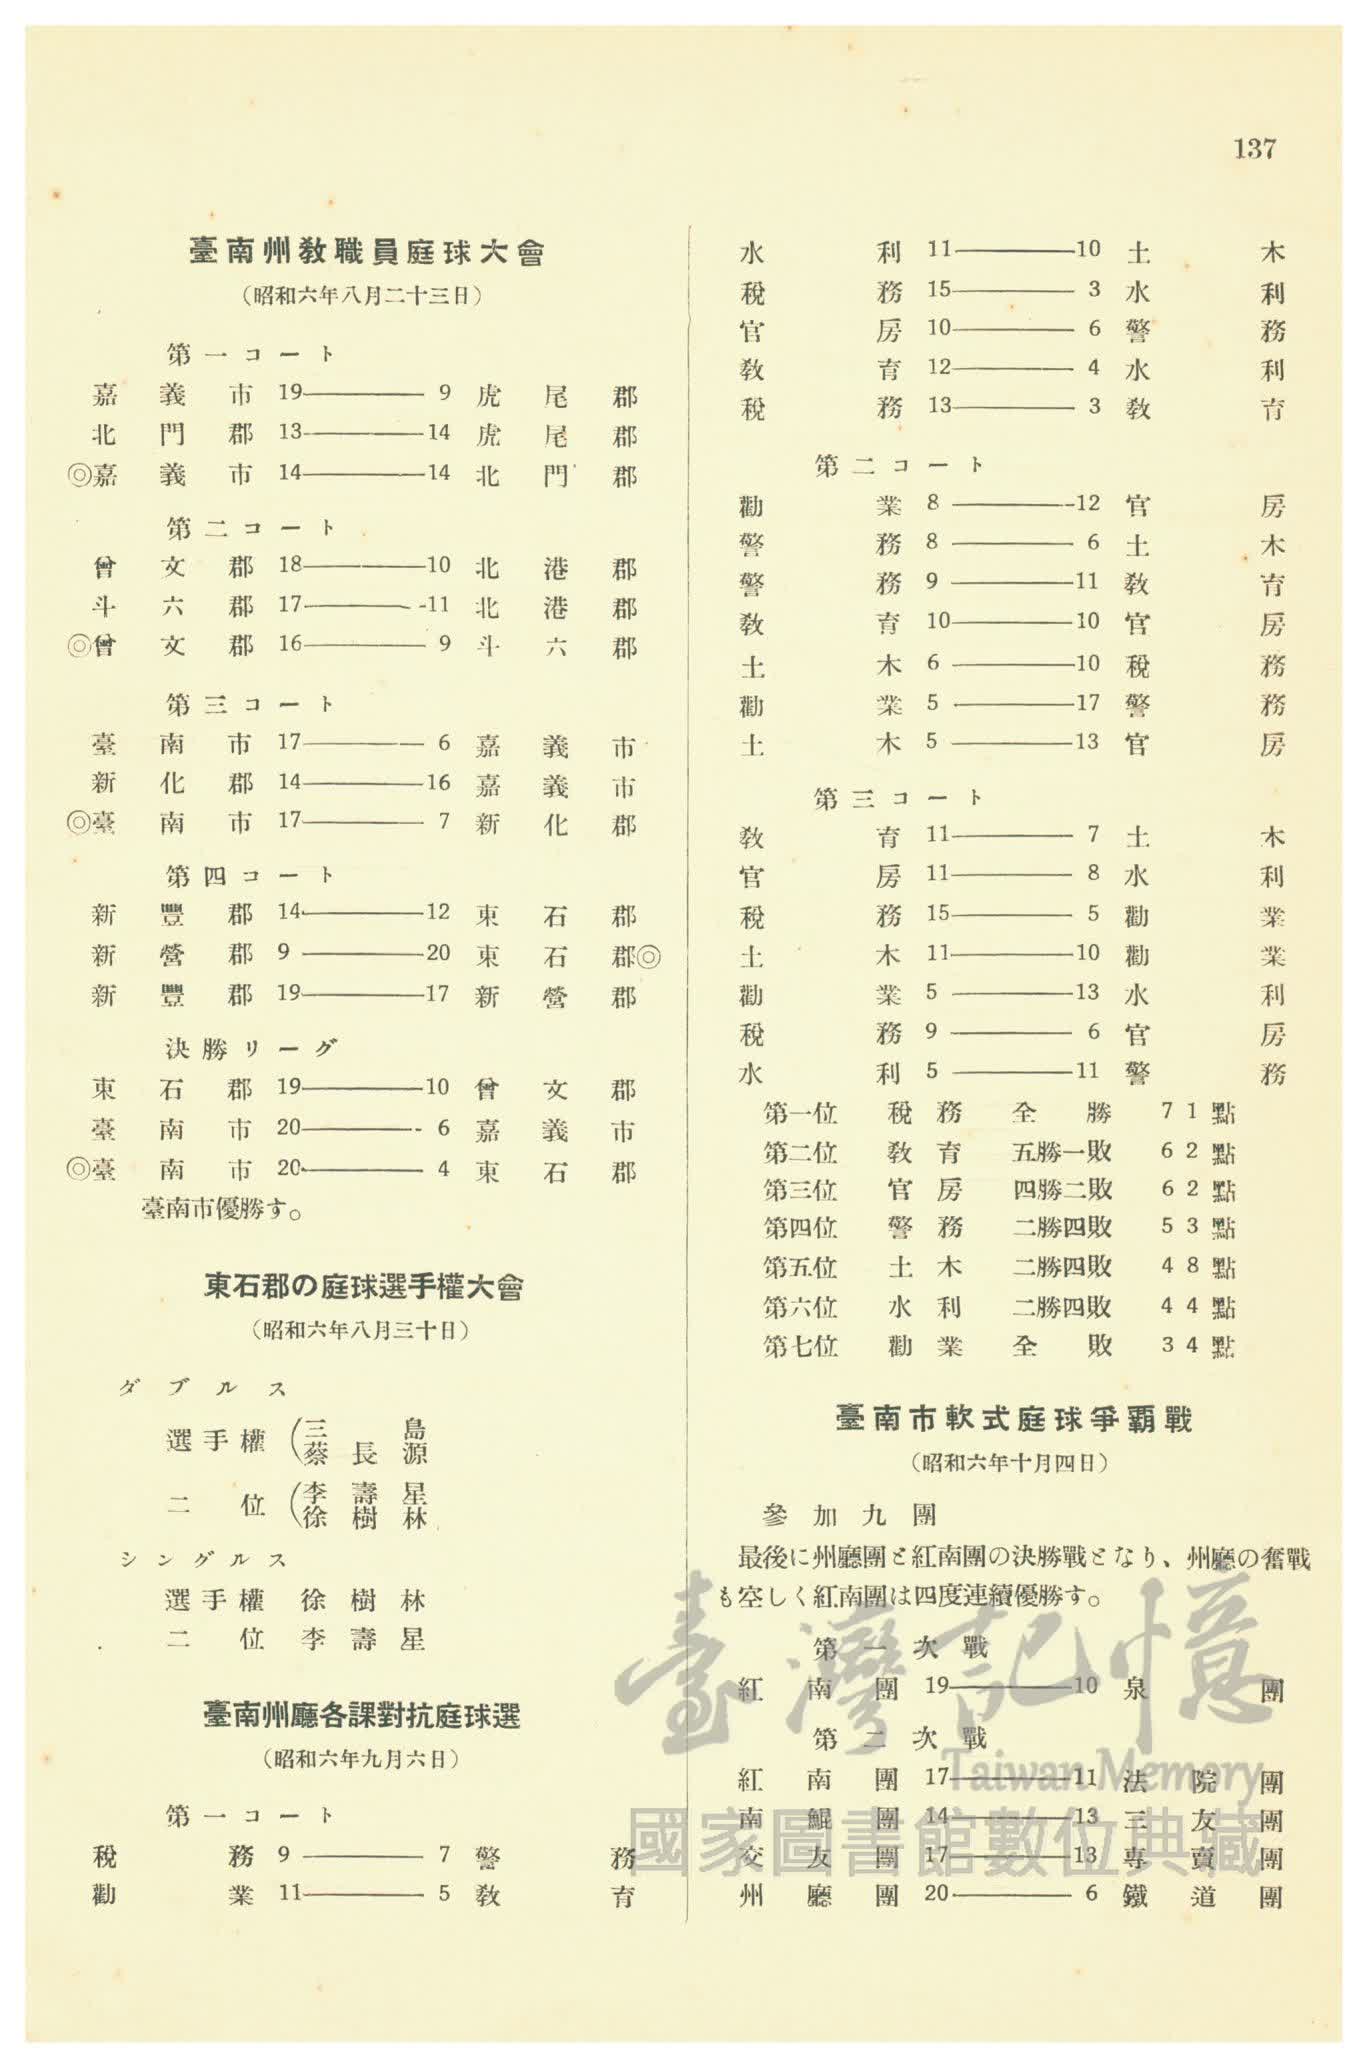 137
臺南州教職員庭球大會
(昭和六年八月二十三日)
第一コート
嘉義市 19――9 虎尾郡
北門郡 13――14 虎尾郡
◎嘉義市 14――14 北門郡
第二コート
曾文郡 18――10 北港郡
斗六郡 17――11 北港郡
◎曾文郡 16――9 斗六郡
第三コート
臺南市 17――6 嘉義市
新化郡 14――16 嘉義市
◎臺南市 17――7 新化郡
第四コート
新豐郡 14――12 東石郡
新營郡 9――20 東石郡◎
新豐郡 19――17 新營郡
決勝リーグ
東石郡 19――10 曾文郡
臺南市 20――6 嘉義市
◎臺南市 20――4 東石郡
臺南市優勝す。
東石郡の庭球選手權大會
(昭和六年八月三十日)
ダブルス
選手權(三島
蔡長源
二位(李壽星
徐樹林
シングルス
選手權 徐樹林
二位 李壽星
臺南州廳各課對抗庭球選
(昭和六年九月六日)
第一コート
稅務 9――7 警務
勸業 11――5 教育
水利 11――10 土木
稅務 15――3 水利
官房 10――6 警務
教育 12――4 水利
稅務 13――3 教育
第二コート
勸業 8――12 官房
警務 8――6 土木
警務 9――11 教育
教育 10――10 官房
土木 6――10 稅務
勸業 5――17 警務
土木 5――13 官房
第三コート
教育 11――7 土木
官房 11――8 水利
稅務 15――5 勸業
土木 11――10 勸業
勸業 5――13 水利
稅務 9――6 官房
水利 5――11 警務
第一位 稅務 全勝 71點
第二位 教育 五勝一敗 62點
第三位 官房 四勝二敗 62點
第四位 警務 二勝四敗 53點
第五位 土木 二勝四敗 48點
第六位 水利 二勝四敗 44點
第七位 勸業 全敗 34點
臺南市軟式庭球爭覇戰
(昭和六年十月四日)
參加九團
最後に州廳團と紅南團の決勝戰となり、州廳の奮戰
も空しく紅南團は四度連續優勝す。
第一次戰
紅南團 19――10 泉團
第二次戰
紅南團 17――11 法院團
南鯤團 14――13 三友團
交友團 17――13 專賣團
州廳團 20――6 鐵道團
臺灣記憶
Taiwan Memory
國家圖書館數位典藏